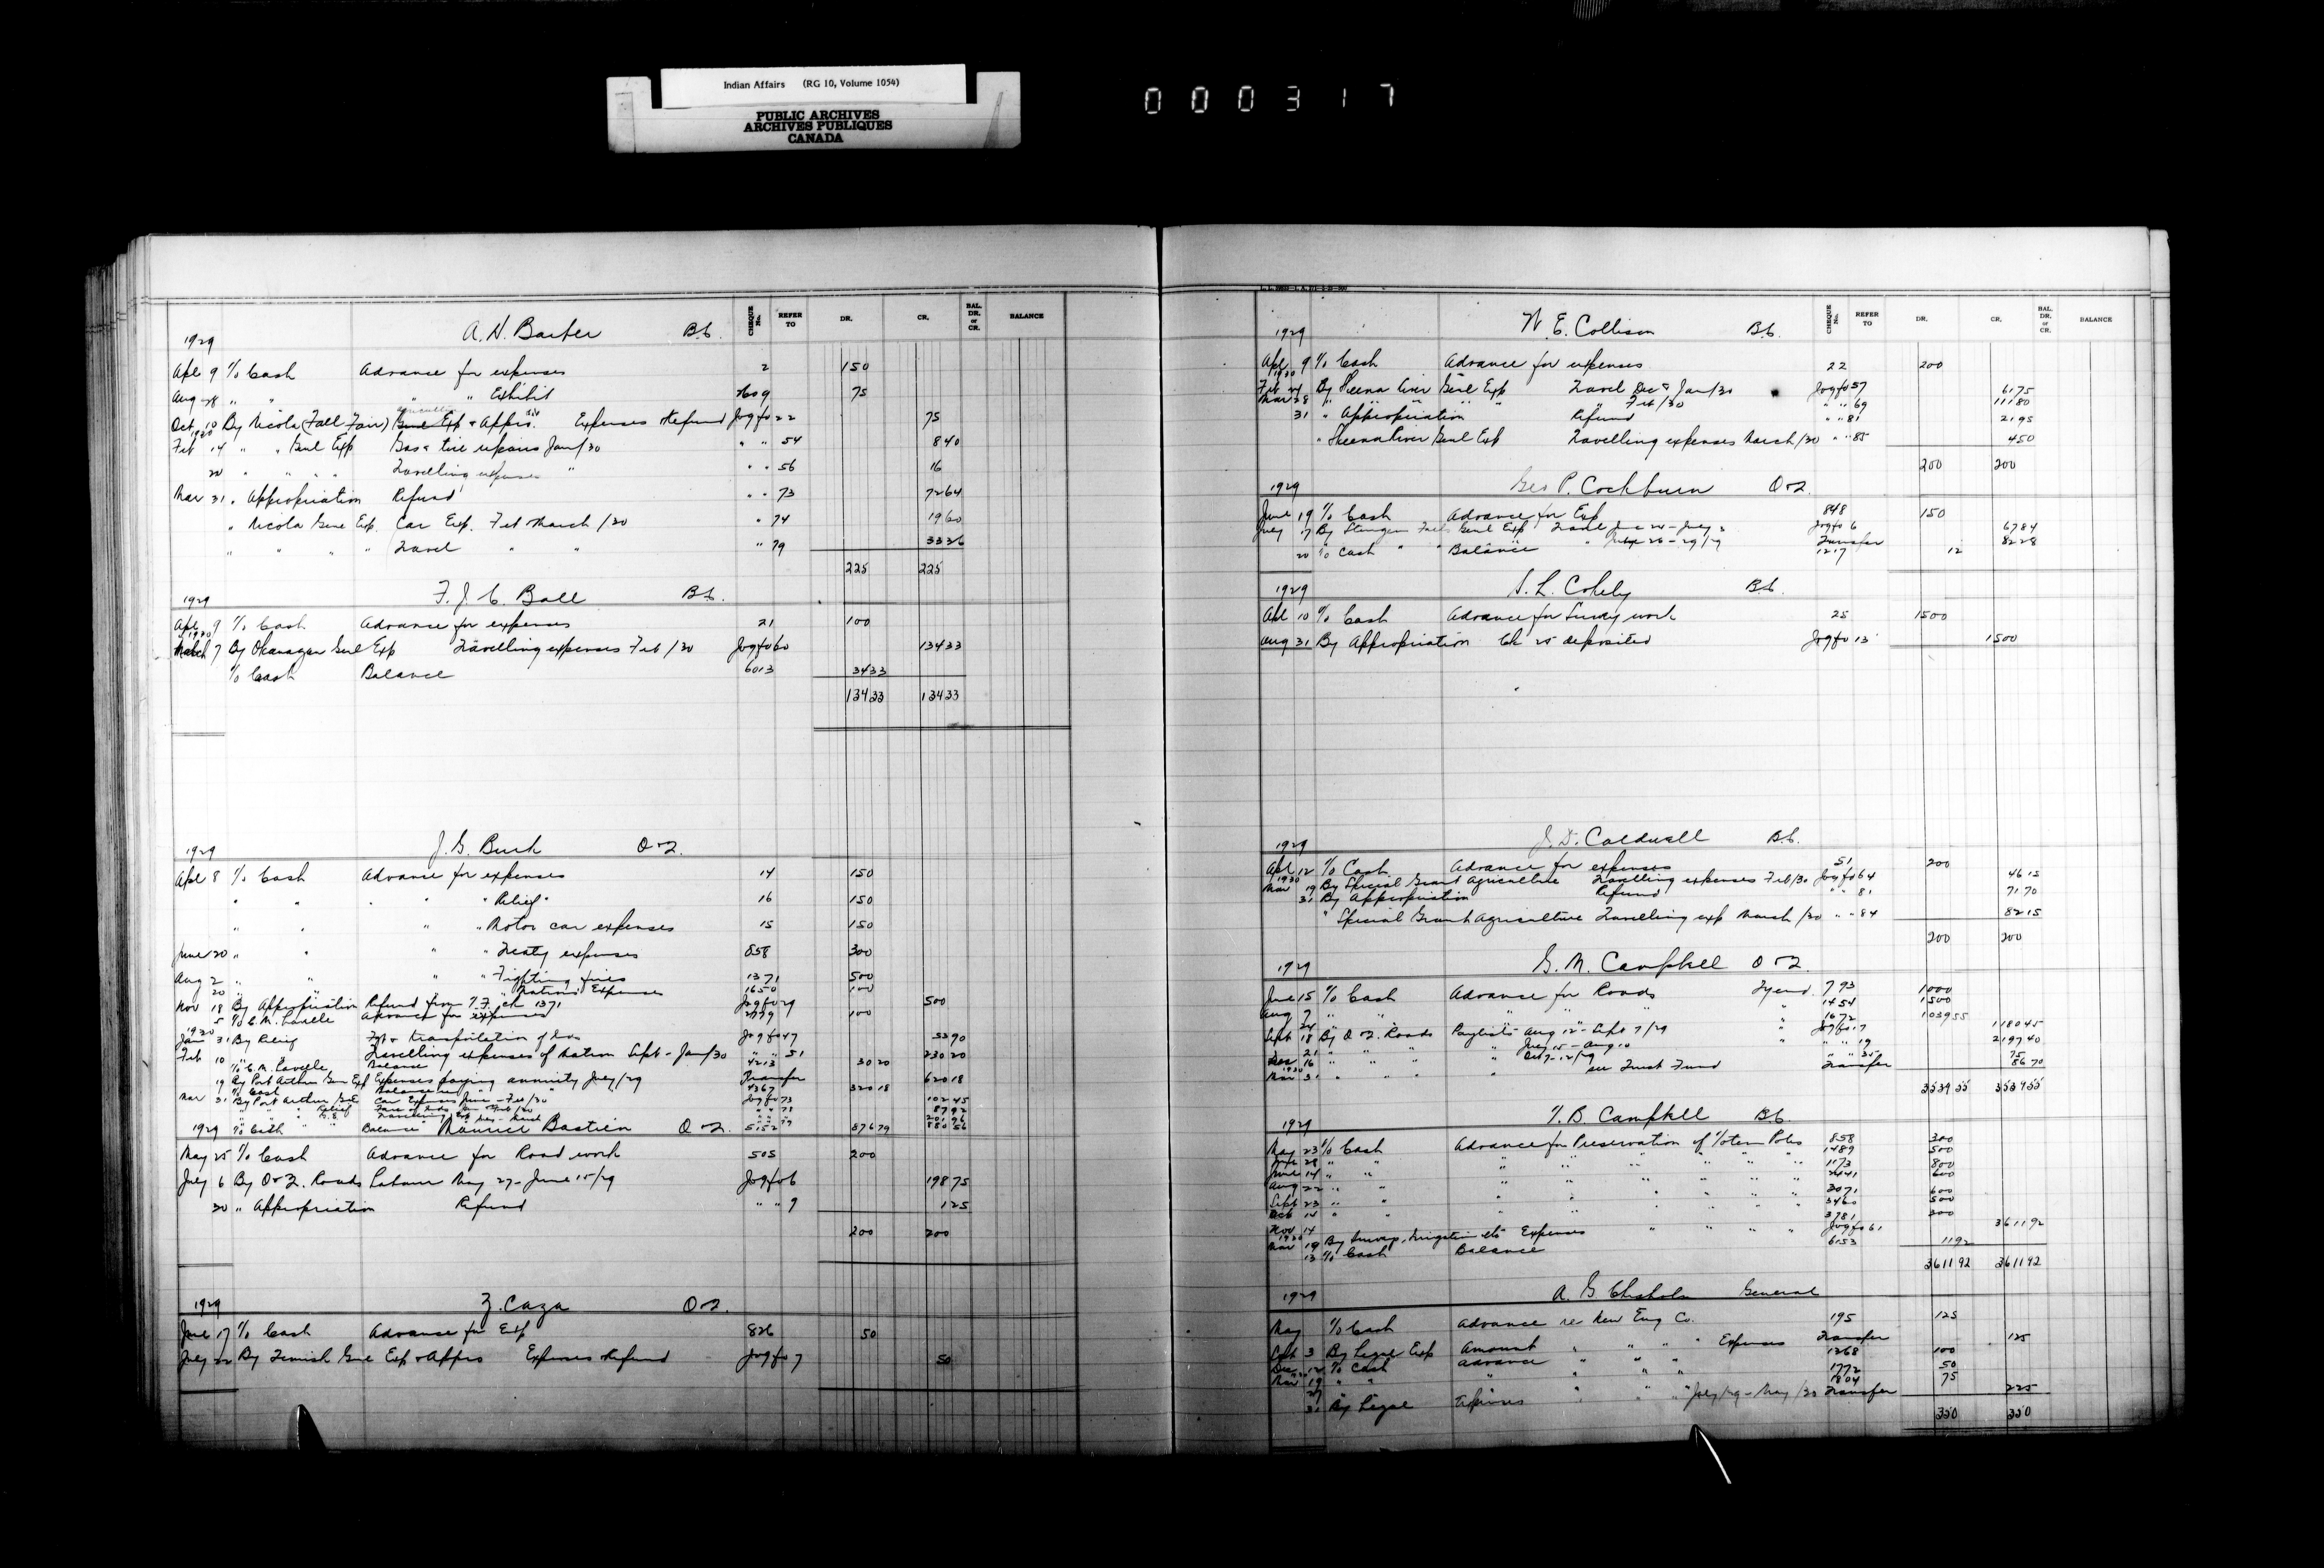 Indian Affairs (RG 10, Volume 1054)
PUBLIC ARCHIVES
ARCHIVES PUBLIQUES
CANADA
000317
CHEQUE No. REFER TO DR. CR. BAL. DR. or CR. BALANCE
1929 A. H. Barber B.C.
Apl 9 To Cash Advance for expenses 2 150
Aug 28 " " " " Exhibit 75
Oct 10 By Nicola (Fall Fair) Genl Exp & Appro. Expenses & Refund Jog fo 22 75
1930
Feb 14 " " Genl Exp Gas & tire repairs Jan/30 " " 54 8 40
20 " " " " Travelling expenses " " " 56 16
Mar 31 " Appropriation Refund " " 73 72 64
" Nicola Genl Exp. Car Exp. Feb & March/30 " 74 19 60
" " " " Travel " " " 79 33 36
225 225
1929 F. J. C. Ball B.C.
Apl 9 To Cash Advance for expenses 21 100
1930
March 7 By Okanagan Genl Exp Travelling expenses Feb/30 Jog fo 60 134 33
To Cash Balance 6013 34 33
134 33 134 33
1929 J. G. Burk O & Q.
Apl 8 To Cash Advance for expenses 14 150
" " " " " Relief " 16 150
" " " " Motor car expenses 15 150
June 20 " " " " Treaty expenses 858 300
Aug 2 " " " " Fighting fires 1371 500
20 " " Matrons Expenses 1650 100
Nov 18 By Appropriation Refund from F.F. ch 1371 Jog fo 29 500
5 To C. M. Lavelle Advance for expenses 2779 100
1930
Jan 31 By Relief Frt & transportation of Inds Jog fo 47 53 90
Feb 10 Travelling expenses of Matron Sept - Jan/30 " " 51 230 20
To C. M. Lavelle Balance 4213 30 20
19 By Port Arthur Gen Exp Expenses paying annuity July/29 Transfer 620 18
" To Cash Balance 4367 320 18
Mar 31 By Port Arthur G.E. Car Expenses June - Feb/30 Jog fo 73 102 45
" Relief 87 92
To Cash Balance 5152 376 79 880 56
1929 Maurice Bastien O & Q.
May 25 To Cash Advance for Road work 505 200
July 6 By O & Q. Roads Labour May 27 - June 15/29 Jog fo 6 198 75
20 " Appropriation Refund " " 9 1 25
200 200
1929 Z. Caza O & Q.
June 17 To Cash Advance for Exp 826 50
July 22 By Temisk Genl Exp & Appro Expenses & Refund Jog fo 7 50
CHEQUE No. REFER TO DR. CR. BAL. DR. or CR. BALANCE
1929 W. E. Collison B.C.
Apl 9 To Cash Advance for expenses 22 200
1930
Feb 24 By Skeena River Genl Exp Travel Dec & Jan/30 Jog fo 57 61 75
Mar 28 " " " " " " Feb/30 " " 69 111 80
31 " Appropriation Refund " " 81 21 95
" Skeena River Genl Exp Travelling expenses March/30 " " 85 4 50
200 200
1929 Geo P. Cockburn O & Q.
June 19 To Cash Advance for Exp 848 150
July 17 By Sturgeon Falls Genl Exp Travel June 24 - July 2 Jog fo 6 67 84
" 26 - 29/29 Transfer 82 28
20 To Cash " " Balance 1217 12
1929 S. L. Cohely B.C.
Apl 10 To Cash Advance for Survey work 25 1500
Aug 31 By Appropriation Ch 25 deposited Jog fo 13 1500
1929 J. D. Caldwell B.C.
Apl 12 To Cash Advance for expenses 51 200
1930
Mar 19 By Special Grant Agriculture Travelling expenses Feb/30 Jog fo 64 46 15
31 By Appropriation Refund " " 81 71 70
" Special Grant Agriculture Travelling exp March/30 " " 84 82 15
200 200
1929 G. M. Campbell O & Q.
June 15 To Cash Advance for Roads Tyend. 793 1000
Aug 7 " " " " " " 1454 1500
24 " " " " " " 1672 1039 55
Sept 18 By O & Q. Roads Paylists Aug 12 - Sept 7/29 " Jog fo 17 1180 45
21 " " " " July 15 - Aug 10 " " " 19 2197 40
Dec 16 " " " " Oct 7 - 12/29 " " 35 75
1930
Mar 31 " " " " see Trust Fund Transfer 86 70
3539 55 3539 55
1929 T. B. Campbell B.C.
May 23 To Cash Advance for Preservation of Totem Poles 858 300
28 " " " " " " " " 1489 500
June 14 " " " " " " " " 1173 800
Aug 22 " " " " " " " " 2441 600
Sept 23 " " " " " " " " 3071 600
Oct 14 " " " " " " " " 3460 500
Nov 14 3781 300
1930
Mar 19 By Surveys, Irrigation etc Expenses " " " " Jog fo 61 3611 92
13 To Cash Balance 6153 11 92
3611 92 3611 92
1929 A. G. Chisholm General
May To Cash Advance re New Eng Co. 195 125
Sept 3 By Legal Exp Amount " " " Expenses Transfer 125
Dec 12 To Cash Advance " " " 1268 100
Mar 19 " " " " " " 1772 50
27 1804 75
31 By Legal Expenses " " " July/29 - May/30 Transfer 225
350 350